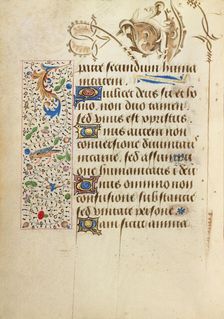 patre secundum huma
nitatem
Qui licet deus sit et ho
mo non duo tamen
sed unus est christus
Unus autem non
conversione divinitatis
in carne sed assump
humanitatis in deu
Unus omnino non
confusione substantie
sed unitate persone
Nam sicut anima